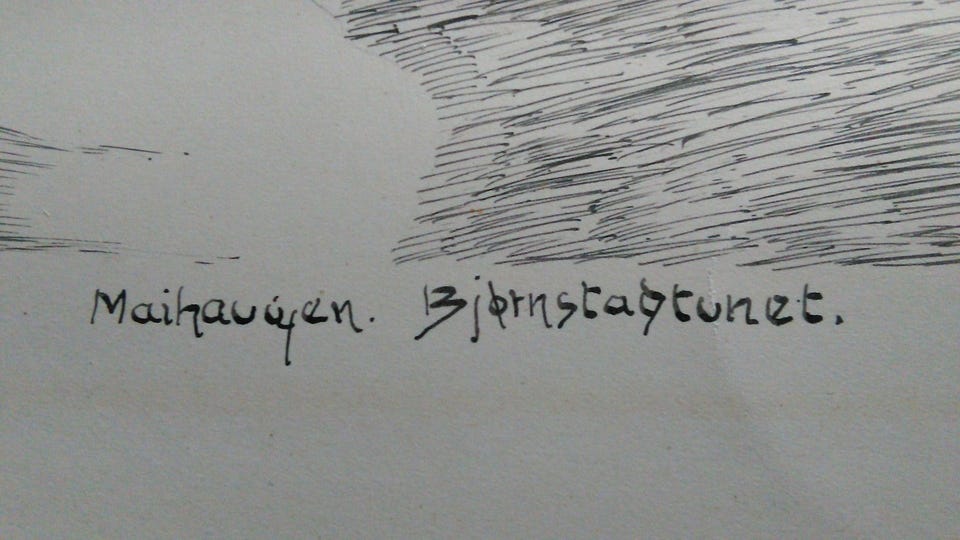 Maihaugen. Bjørnstadtunet.